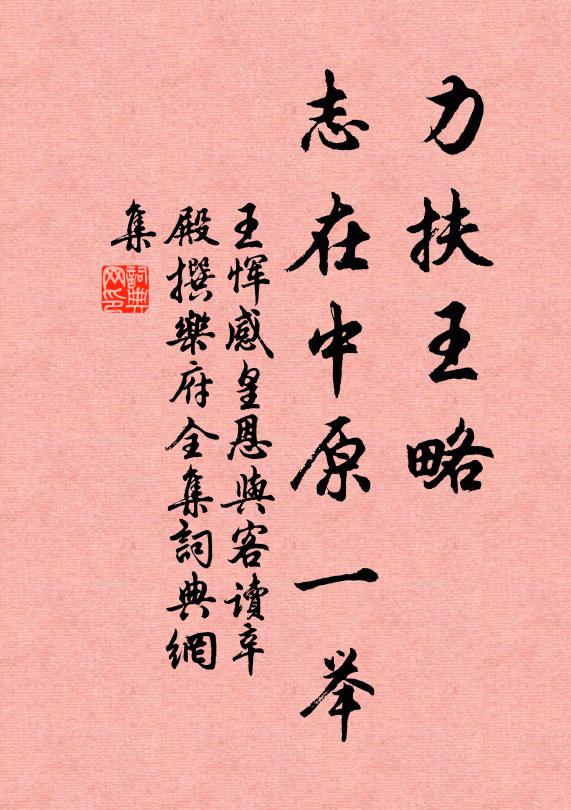 力扶王略
志在中原一举
王恽感皇恩與客读辛
殿撰樂府全集詞典網
集
詞典
网印